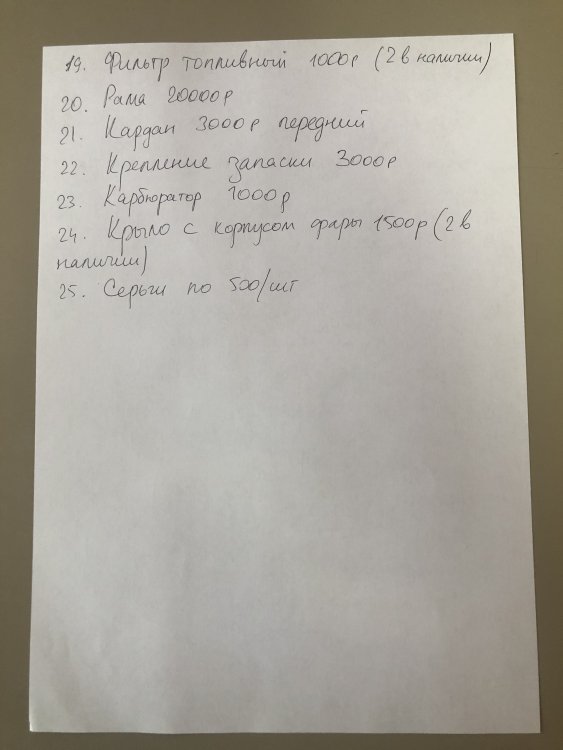 19. Фильтр топливный 1000р (2 в наличии)
20. Рама 20000р
21. Кардан 3000р передний
22. Крепление запаски 3000р
23. Карбюратор 1000р
24. Крыло с корпусом фары 1500р (2 в
наличии)
25. Серьги по 500/шт